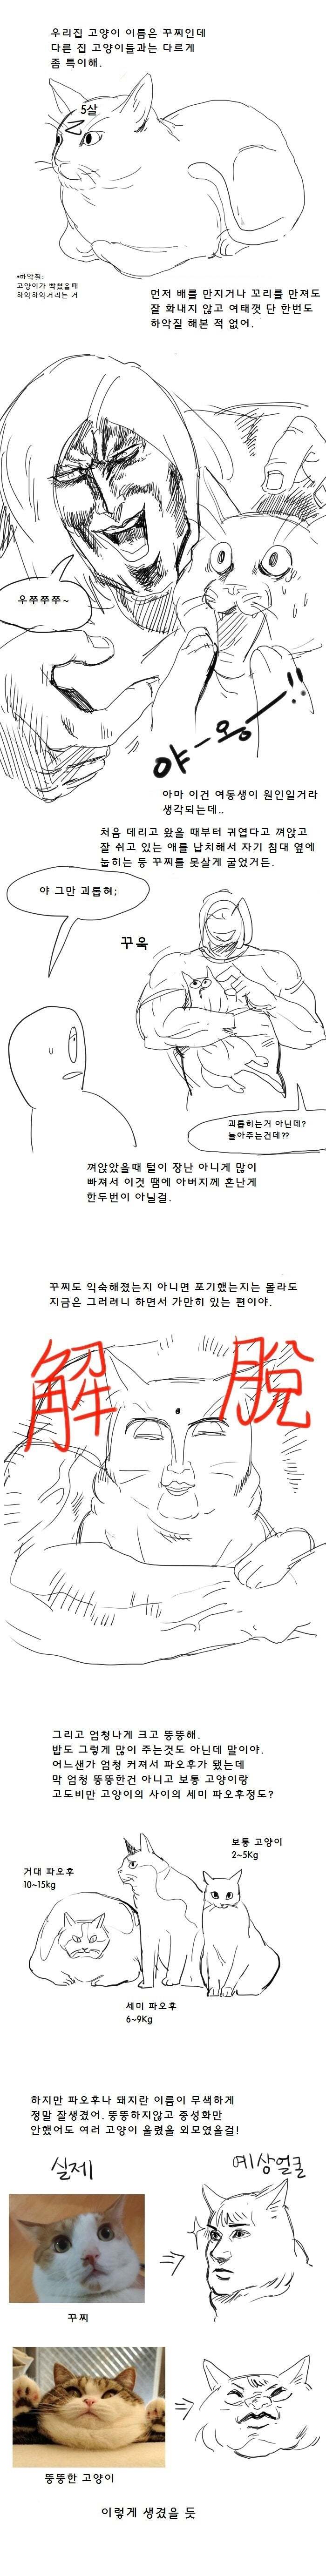 우리집 고양이 이름은 꾸찌인데
다른 집 고양이들과는 다르게
좀 특이해.
5살
*하악질:
고양이가 빡쳤을때
하악하악거리는 거
먼저 배를 만지거나 꼬리를 만져도
잘 화내지 않고 여태껏 단 한번도
하악질 해본 적 없어.
우쭈쭈쭈~
야-옹!!
아마 이건 여동생이 원인일거라
생각되는데..
처음 데리고 왔을 때부터 귀엽다고 껴앉고
잘 쉬고 있는 애를 납치해서 자기 침대 옆에
눕히는 등 꾸찌를 못살게 굴었거든.
야 그만 괴롭혀;
꾸욱
괴롭히는거 아닌데?
놀아주는건데??
껴앉았을때 털이 장난 아니게 많이
빠져서 이것 땜에 아버지께 혼난게
한두번이 아닐걸.
꾸찌도 익숙해졌는지 아니면 포기했는지는 몰라도
지금은 그러려니 하면서 가만히 있는 편이야.
解脫
그리고 엄청나게 크고 뚱뚱해.
밥도 그렇게 많이 주는것도 아닌데 말이야.
어느샌가 엄청 커져서 파오후가 됐는데
막 엄청 뚱뚱한건 아니고 보통 고양이랑
고도비만 고양이의 사이의 세미 파오후정도?
보통 고양이
2~5Kg
거대 파오후
10~15kg
세미 파오후
6~9Kg
하지만 파오후나 돼지란 이름이 무색하게
정말 잘생겼어. 뚱뚱하지않고 중성화만
안했어도 여러 고양이 울렸을 외모였을걸!
실제
예상얼굴
꾸찌
뚱뚱한 고양이
이렇게 생겼을 듯